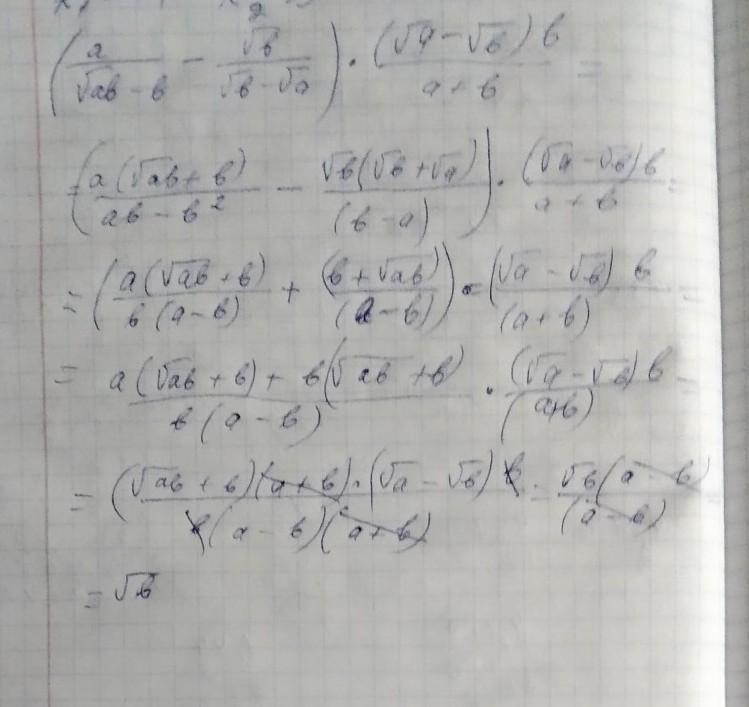 (a/(√ab − b) − √b/(√b − √a)) · ((√a − √b) b)/(a + b) =
= (a(√ab + b)/(ab − b²) − √b(√b + √a)/(b − a)) · ((√a − √b) b)/(a + b) =
= (a(√ab + b)/(b(a − b)) + (b + √ab)/(a − b)) · ((√a − √b) b)/(a + b) =
= (a(√ab + b) + b(√ab + b))/(b(a − b)) · ((√a − √b) b)/(a + b) =
= ((√ab + b)(a + b) · (√a − √b) b)/(b(a − b)(a + b)) = (√b(a − b))/(a − b)
= √b